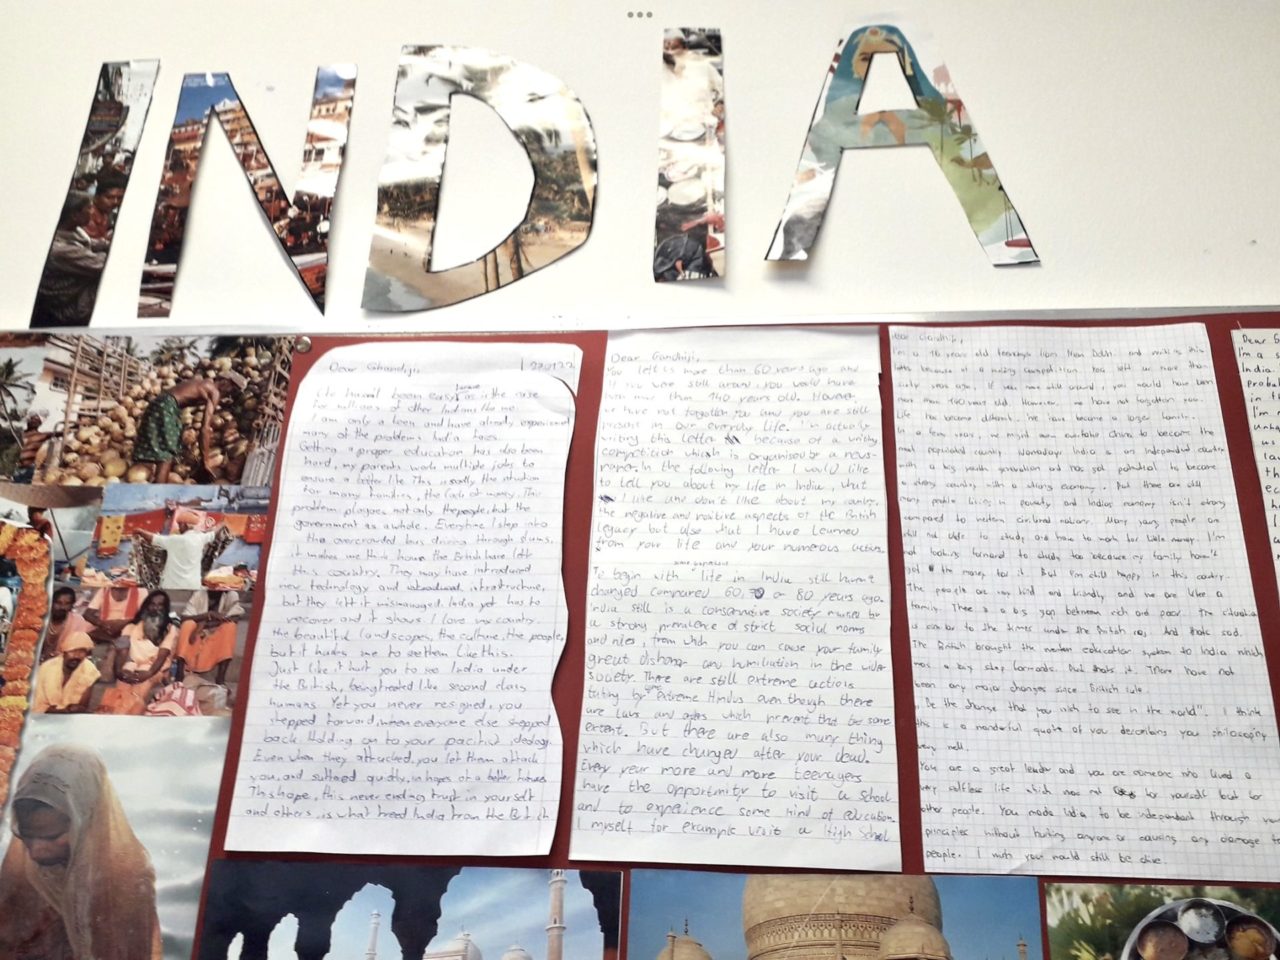 INDIA
Dear Ghandiji,
270122
Life hasn't been easy as is the case
for millions of other Indians like me.
I am only a teen and have already experienced
many of the problems India faces.
Getting a proper education has also been
hard, my parents work multiple jobs to
ensure a better life. This is sadly the situation
for many families, the lack of money. This
problem plagues not only the people, but the
government as a whole. Everytime I step into
the overcrowded bus driving through slums,
it makes me think how the British have left
this country. They may have introduced
new technology and infrastructure,
but they left it mismanaged. India yet has to
recover and it shows. I love my country,
the beautiful landscapes, the culture, the people,
but it hurts me to see them like this.
Just like it hurt you to see India under
the British, being treated like second class
humans. Yet you never resigned, you
stepped forward, when everyone else stepped
back. Holding on to your pacifist ideology.
Even when they attacked you, you let them attack
you, and suffered quietly, in hopes of a better future.
This hope, this never ending trust in yourself
and others, is what freed India from the British
Dear Gandhiji,
You left us more than 60 years ago and
if you were still around, you would have
been more than 140 years old. However,
we have not forgotten you and you are still
present in our everyday life. I'm actually
writing this letter because of a writing
competition which is organised by a news-
paper. In the following letter I would like
to tell you about my life in India, what
I like and don't like about my country,
the negative and positive aspects of the British
legacy but also what I have learned
from your life and your numerous actions.
To begin with life in India still haven't
changed compared 60, 70 or 80 years ago.
India still is a conservative society marked by
a strong prevalence of strict social norms
and rules, from which you can cause your family
great dishonor and humiliation in the wider
society. There are still extreme actions
taking by extreme Hindus even though there
are laws and which prevent that to some
extent. But there are also many thing
which have changed after your dead.
Every year more and more teenagers
have the opportunity to visit a school
and to experience some kind of education.
I myself for example visit a High School
dear Gandhiji,
I'm a 16 years old teenager from New Delhi and writing this
letter because of a writing competition. You left us more than
sixty years ago. If you were still around, you would have been
more than 140 years old. However, we have not forgotten you.
Life has become different. We have become a larger family.
In a few years, we might even overtake China to become the
most populated country. Nowadays India is an independent country
with a big youth generation and has got potential to become
a strong country with a strong economy. But there are still
many people living in poverty and Indias economy isn't strong
compared to western civilized nations. Many young people are
still not able to study and have to work for little money. I'm
not looking forward to study too because my family hasn't
got the money for it. But I'm still happy in this country.
The people are very kind and friendly, and we are like a
family. There is a big gap between rich and poor. The situation
is similar to the times under the British raj. And thats sad.
The British brought the western education system to India which
was a big step forwards. But thats it. There have not
been any major changes since British rule.
"Be the change that you wish to see in the world". I think
this is a wonderful quote of you describing your philosophy
very well.
You are a great leader and you are someone who lived a
very selfless life which was not for yourself but for
other people. You made India to be independent through your
principles without hurting anyone or causing any damage to
people. I wish you would still be alive.
Dear G
I'm a
India.